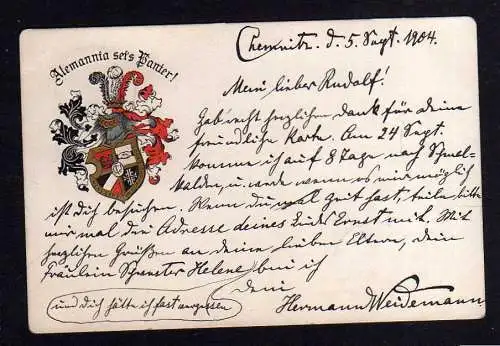 Alemannia sei's Panier!
Chemnitz. d. 5. Sept. 1904.
Mein lieber Rudolf!
Hab' recht herzlichen Dank für deine
freundliche Karte. Am 24 Sept.
komme ich auf 8 Tage nach Schmal-
kalden, u. werde wenn es mir möglich
ist dich besuchen. Wenn du mal Zeit hast, teile bitte
mir mal die Adresse deines Ernst mit. Mit
herzlichen Grüßen an deine lieben Eltern, dein
Fräulein Schwester Helene bin ich
dein
Hermann Weidemann.
und dich hätte ich fast vergessen